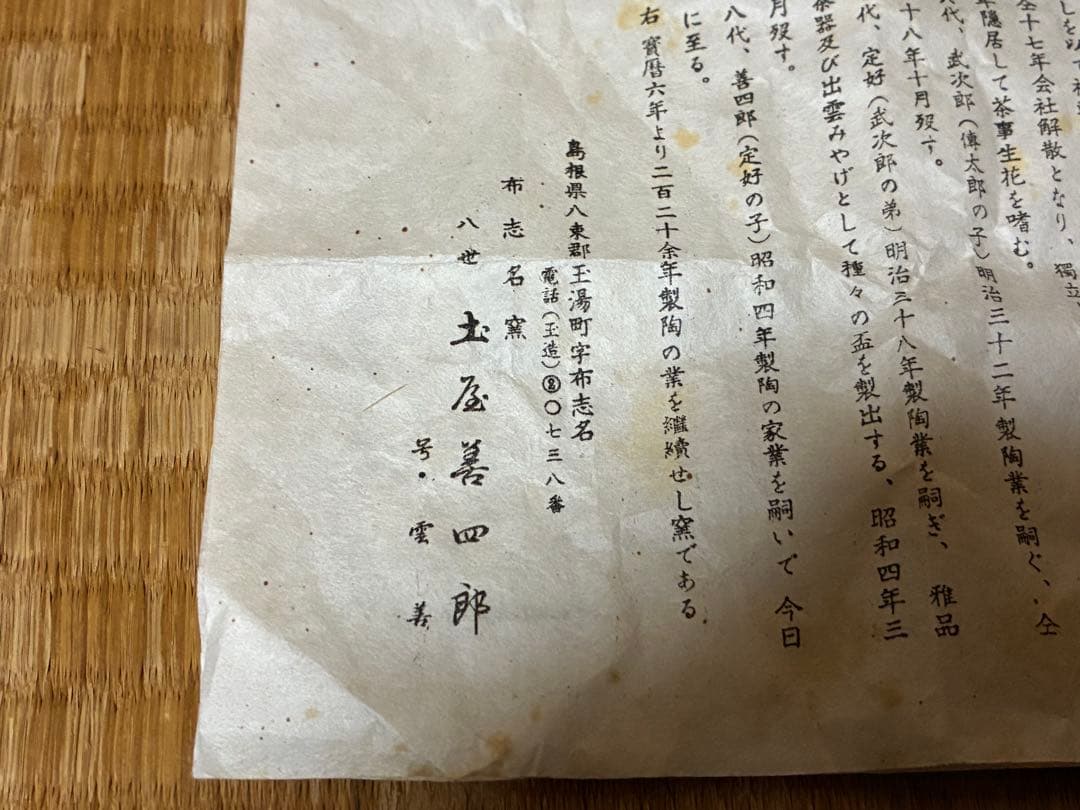 仝十七年会社解散となり、獨立、
年隠居して茶事生花を嗜む。
代、武次郎(傳太郎の子)明治三十二年製陶業を嗣ぐ、仝
十八年十月歿す。
代、定好(武次郎の弟)明治三十八年製陶業を嗣ぎ、雅品
茶器及び出雲みやげとして種々の盃を製出する、昭和四年三
月歿す。
八代、善四郎(定好の子)昭和四年製陶の家業を嗣いで今日
に至る。
右寳暦六年より二百二十余年製陶の業を継續せし窯である
島根県八束郡玉湯町字布志名
電話(玉造)②〇七三八番
布志名窯
八世 土屋善四郎
号・雲善